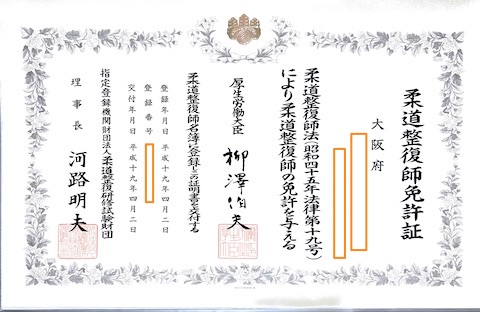 柔道整復師免許証
大阪府
柔道整復師法(昭和四十五年法律第十九号)
により柔道整復師の免許を与える
厚生労働大臣 柳澤伯夫
柔道整復師名簿に登録しこの証明書を交付する
登録年月日 平成十九年四月二日
登録番号
交付年月日 平成十九年四月二日
指定登録機関財団法人柔道整復研修試験財団
理事長 河路明夫